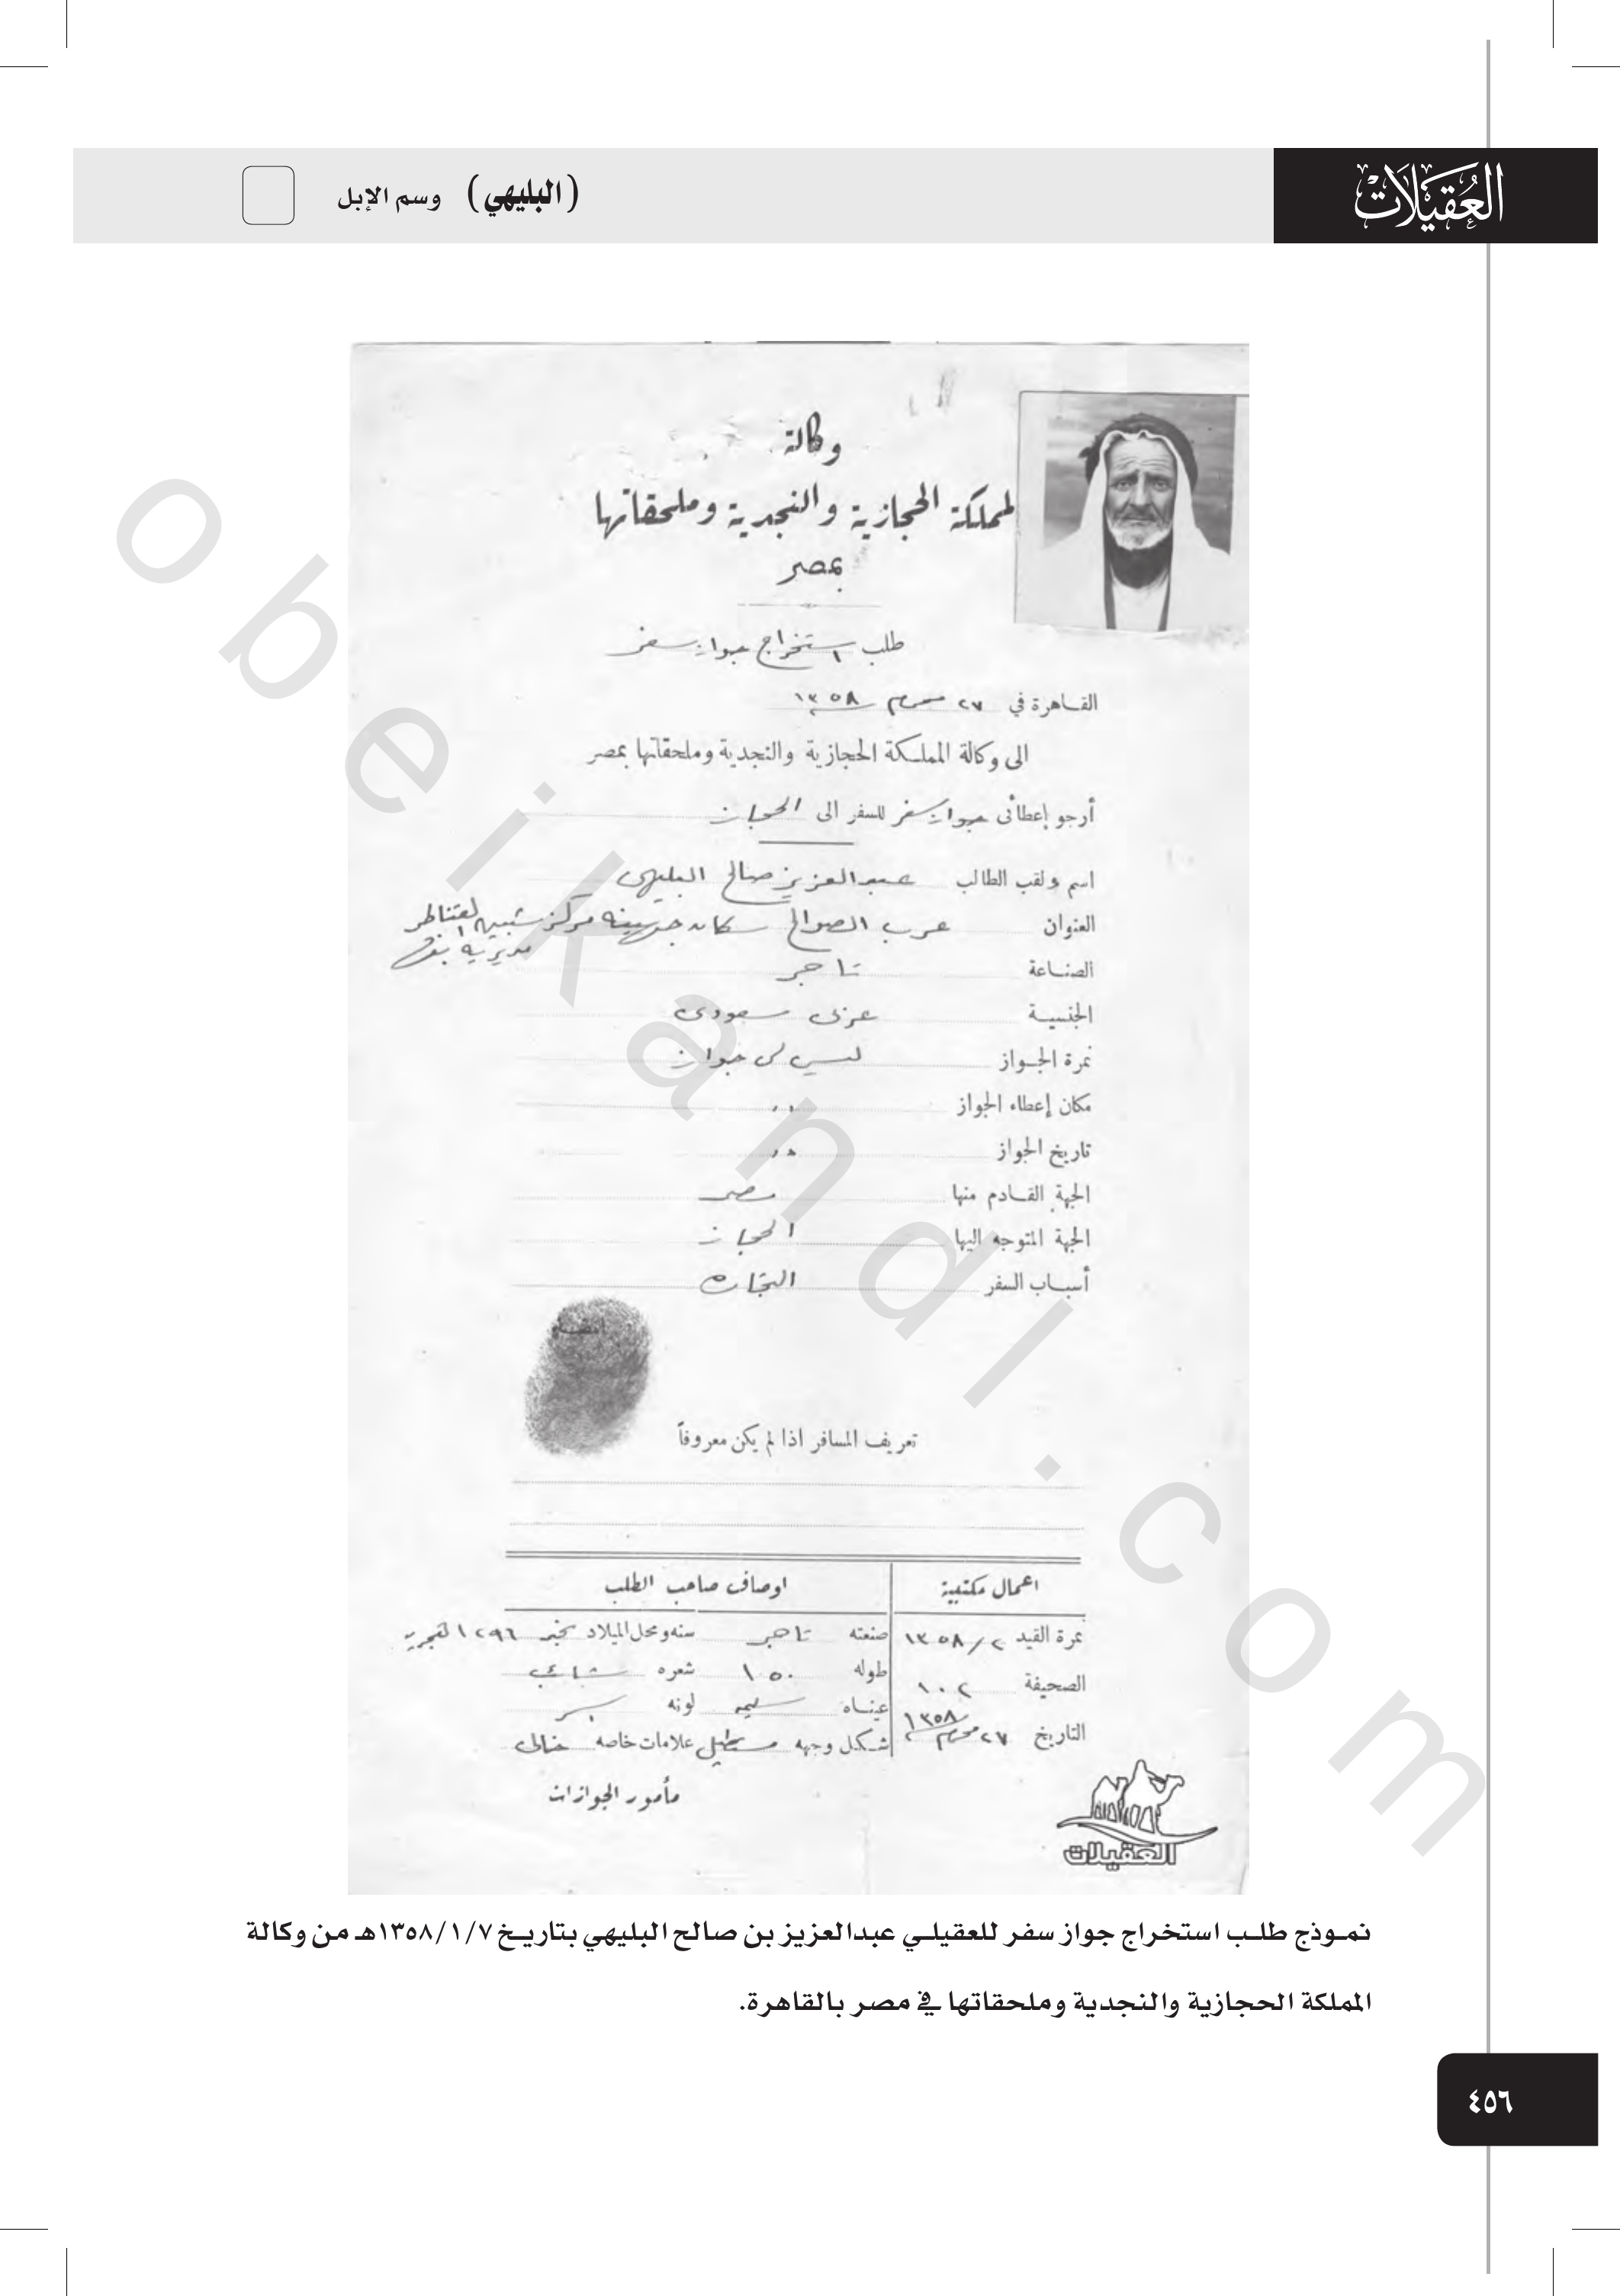 العُقَيْلَاتْ
(البليهي) وسم الإبل
وكالة
لمملكة الحجازية والنجدية وملحقاتها
بمصر
طلب استخراج جواز سفر
القاهرة في ٢٧ محرم ١٣٥٨
الى وكالة المملكة الحجازية والنجدية وملحقاتها بمصر
أرجو إعطائى جواز سفر للسفر الى الحجاز
اسم ولقب الطالب عبدالعزيز صالح البليهى
العنوان عرب الصوالح سكان جهينه مركز شبين القناطر
مديرية
الصناعة تاجر
الجنسية عربى سعودى
نمرة الجواز ليس لى جواز
مكان إعطاء الجواز ٠٠
تاريخ الجواز ٠٠
الجهة القادم منها مصر
الجهة المتوجه اليها الحجاز
أسباب السفر التجاره
امضاء
تعريف المسافر اذا لم يكن معروفاً
اعمال مكتبية اوصاف صاحب الطلب
نمرة القيد ٢/١٣٥٨ صنعته تاجر سنه ومحل الميلاد ١٢٩٦
الصحيفة ١٠٢ طوله ١٥٠ شعره شائب
التاريخ ٢٧ محرم ١٣٥٨ عيناه سليمه لونه اسمر
شكل وجهه مستطيل علامات خاصه خالى
مأمور الجوازات
العقيلات
نموذج طلب استخراج جواز سفر للعقيلي عبدالعزيز بن صالح البليهي بتاريخ ١٣٥٨/١/٧هـ من وكالة
المملكة الحجازية والنجدية وملحقاتها في مصر بالقاهرة.
٤٥٦
obeikandl.com